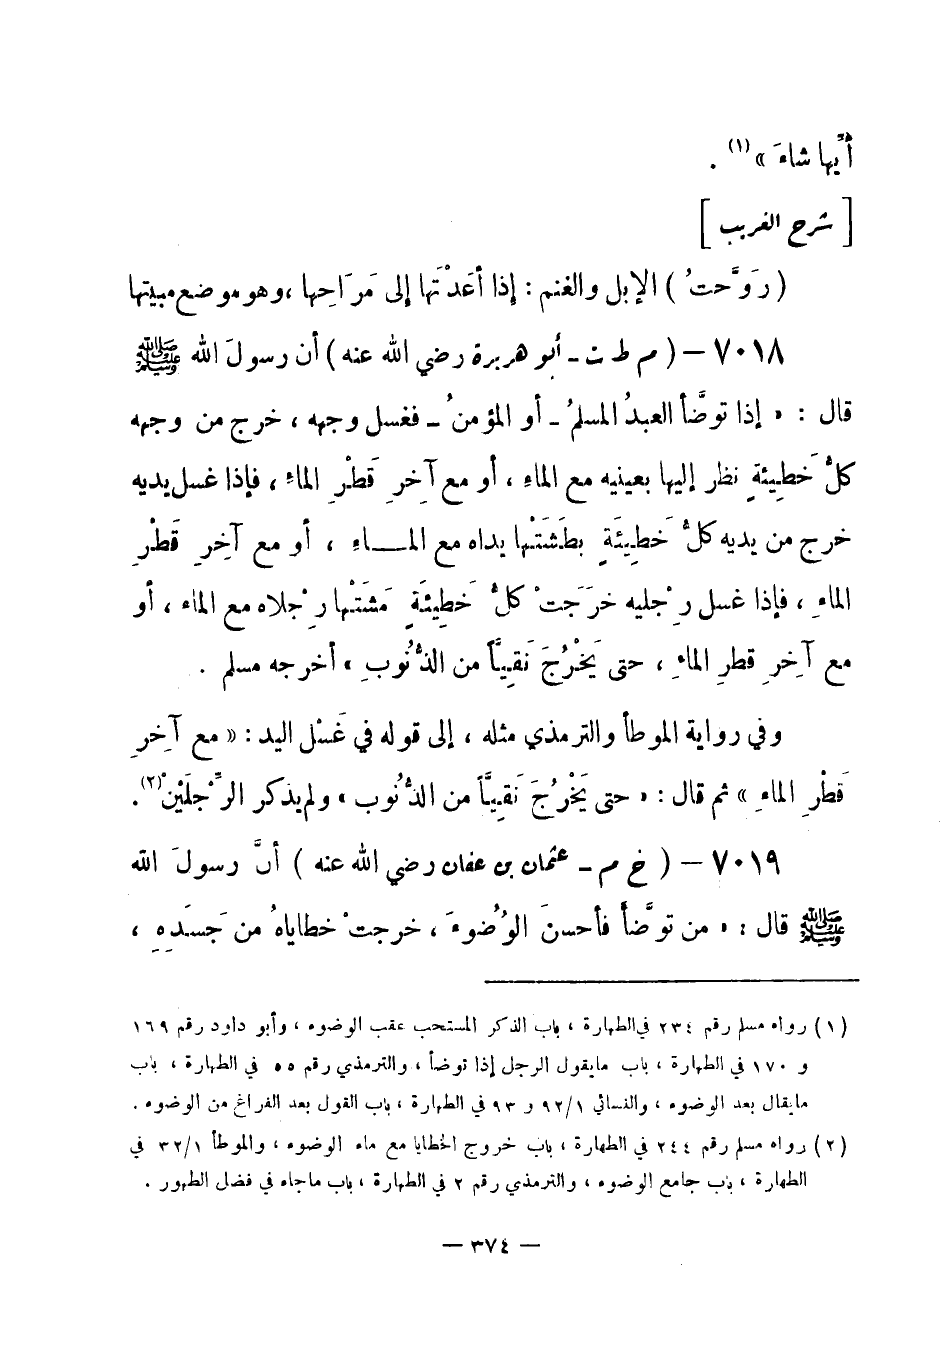 أيُّها شاءَ » (١) .
[ شرح الغريب ]
( رَوَّحتُ ) الإبل والغنم : إذا أعَدْتَها إلى مَرَاحِها ، وهو موضع مبيتها
٧٠١٨ – ( م ط ت - أبو هريرة رضي الله عنه ) أن رسولَ الله ﷺ
قال : « إذا توضَّأ العبدُ المسلمُ - أو المؤمنُ - فغسل وجهه ، خرج من وجهه
كلُّ خَطِيئةٍ نظر إليها بعينيه مع الماءِ ، أو مع آخِرِ قَطْرِ الماءِ ، فإذا غسل يديه
خرج من يديه كلُّ خَطِيئَةٍ بطَشَتْها يداه مع المـــاءِ ، أو مع آخِرِ قَطْرِ
الماءِ ، فإذا غسل رِجليه خرَجَتْ كلُّ خَطِيئَةٍ مَشَتْها رِجلاه مع الماء ، أو
مع آخِرِ قطرِ الماءِ ، حتى يَخْرُجَ نَقِيَّاً من الذُّنُوبِ » أخرجه مسلم .
وفي رواية الموطأ والترمذي مثله ، إلى قوله في غَسْل اليد : « مع آخِرِ
قَطْرِ الماءِ » ثم قال : « حتى يَخْرُجَ نَقِيَّاً من الذُّنُوب » ولم يذكر الرِّجلَيْن (٢) .
٧٠١٩ – ( خ م - عثمان بن عفان رضي الله عنه ) أنَّ رسولَ الله
ﷺ قال : « من توضَّأ فأحسنَ الوُضُوءَ ، خرجتْ خطاياهُ من جَسَدِهِ ،
(١) رواه مسلم رقم ٢٣٤ في الطهارة ، باب الذكر المستحب عقب الوضوء ، وأبو داود رقم ١٦٩
و ١٧٠ في الطهارة ، باب مايقول الرجل إذا توضأ ، والترمذي رقم ٥٥ في الطهارة ، باب
مايقال بعد الوضوء ، والنسائي ٩٢/١ و ٩٣ في الطهارة ، باب القول بعد الفراغ من الوضوء .
(٢) رواه مسلم رقم ٢٤٤ في الطهارة ، باب خروج الخطايا مع ماء الوضوء ، والموطأ ٣٢/١ في
الطهارة ، باب جامع الوضوء ، والترمذي رقم ٢ في الطهارة ، باب ماجاء في فضل الطهور .
— ٣٧٤ —